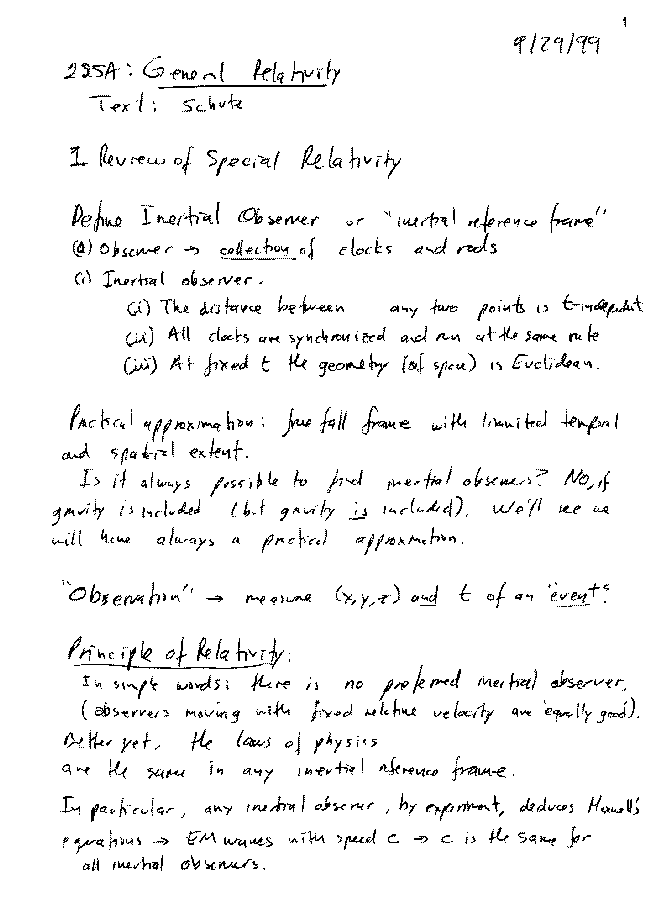 1
9/29/99
225A: General Relativity
Text: Schutz
I Review of Special Relativity
Define Inertial Observer or "inertial reference frame"
(0) Observer → collection of clocks and rods
(1) Inertial observer.
(i) The distance between any two points is t-independent
(ii) All clocks are synchronized and run at the same rate
(iii) At fixed t the geometry (of space) is Euclidean.
Practical approximation: free fall frame with limited temporal
and spatial extent.
Is it always possible to find inertial observers? No, if
gravity is included (but gravity is included). We'll see we
will have always a practical approximation.
"Observation" → measure (x,y,z) and t of an "event".
Principle of Relativity:
In simple words: there is no preferred inertial observer,
(observers moving with fixed relative velocity are "equally good").
Better yet, the laws of physics
are the same in any inertial reference frame.
In particular, any inertial observer, by experiment, deduces Maxwell's
equations → EM waves with speed c → c is the same for
all inertial observers.